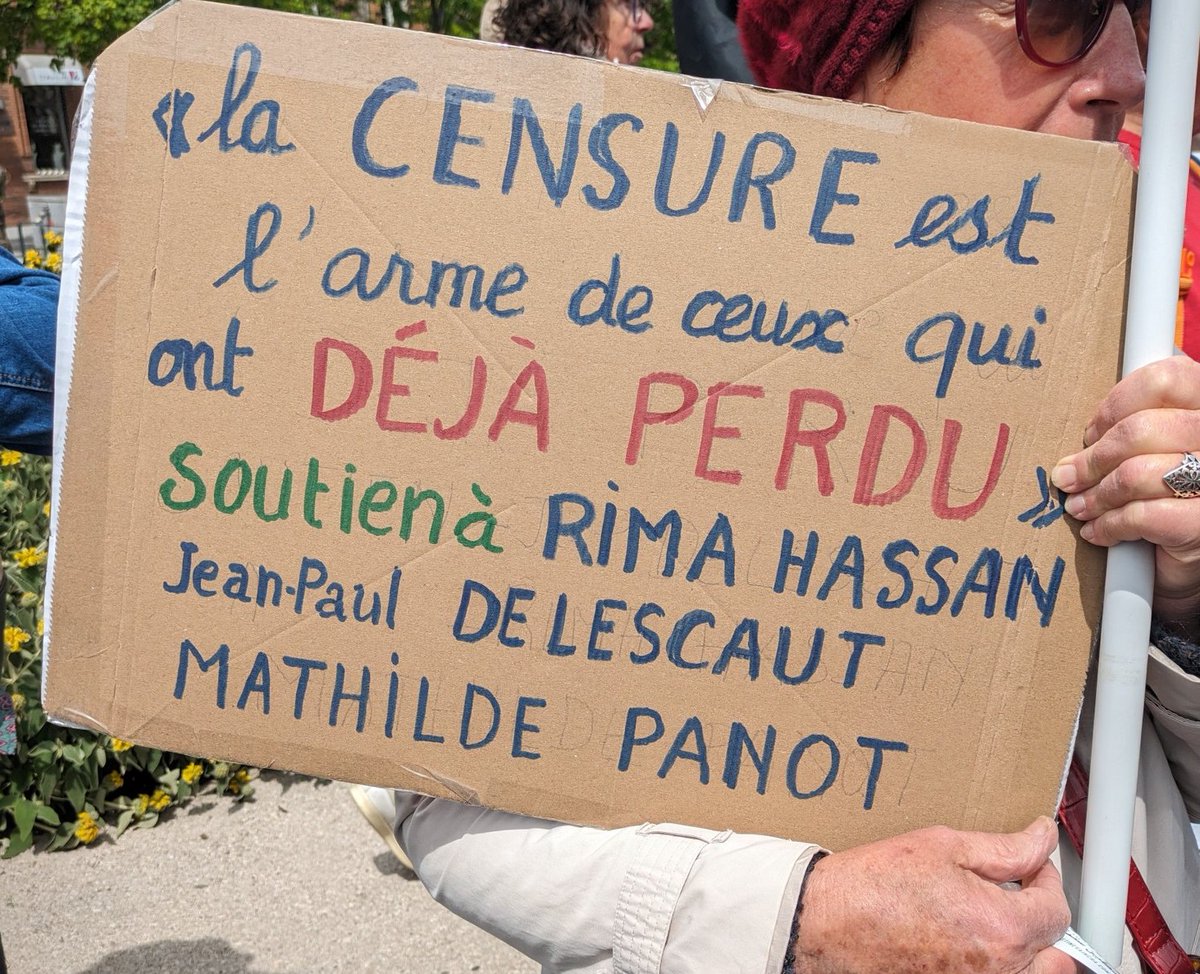 « la CENSURE est
l'arme de ceux qui
ont DÉJÀ PERDU »
soutien à RIMA HASSAN
Jean-Paul DELESCAUT
MATHILDE PANOT